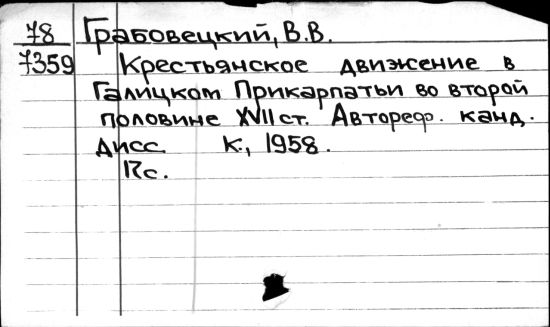 78 Грабовецкий, В.В.
7359 Крестьянское движение в
Галицком Прикарпатьи во второй
половине XVII ст. Автореф. канд.
дисс. К., 1958.
17с.